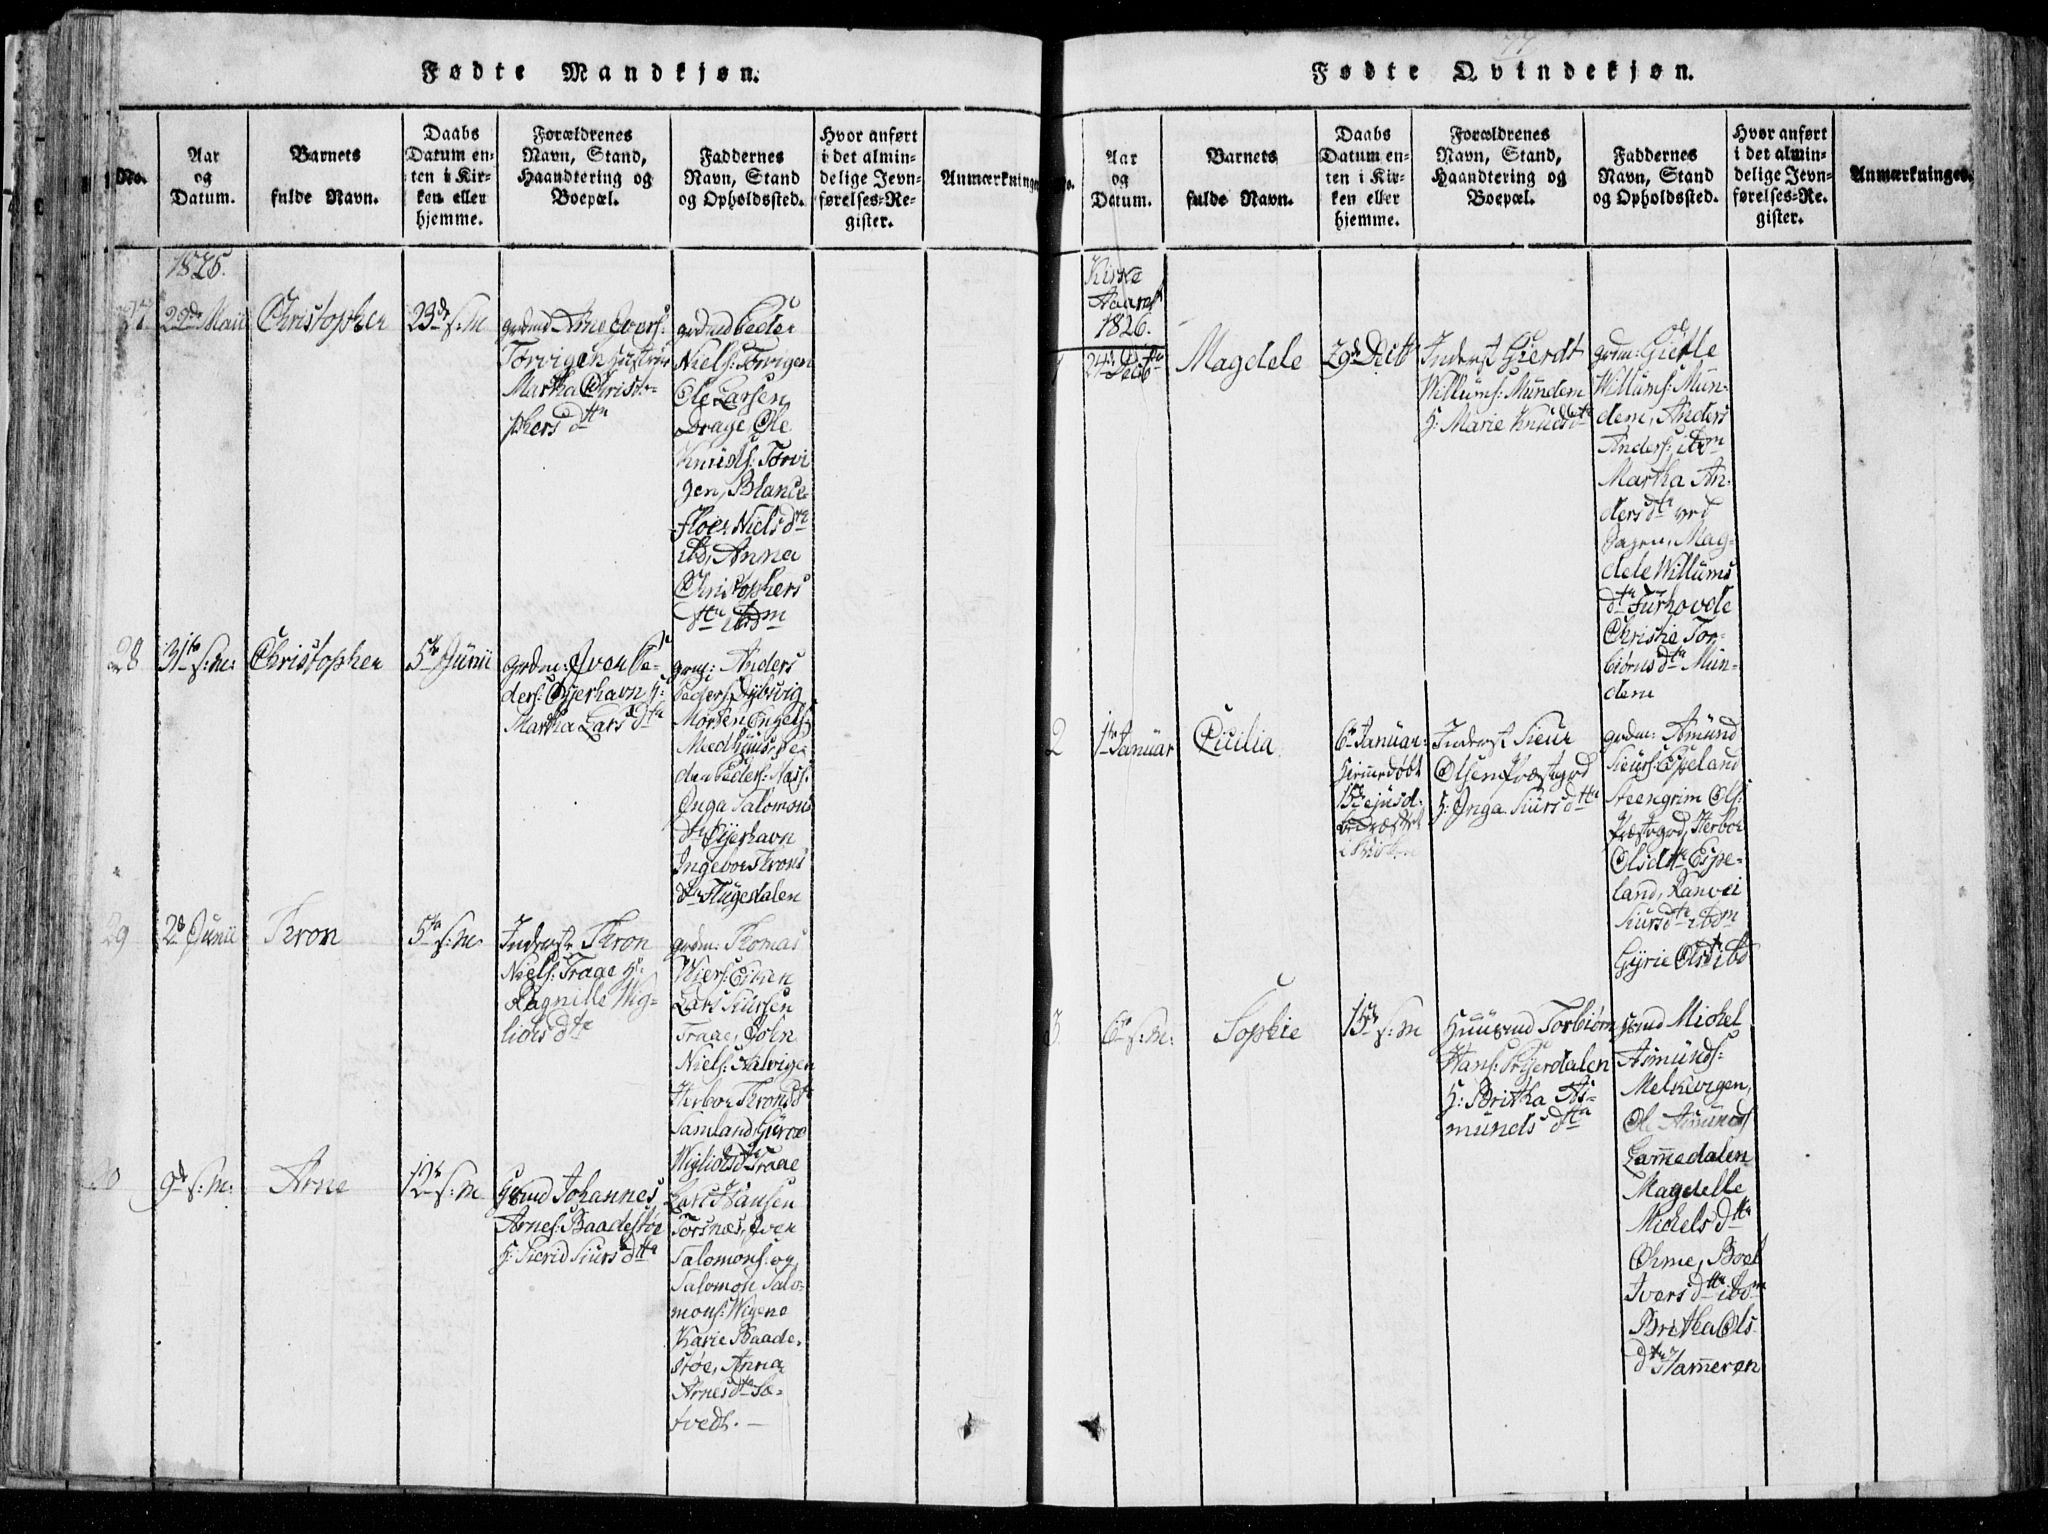 Fødte Mandkjøn.
No.
Aar
og
Datum.
Barnets
fulde Navn.
Daabs
Datum en-
ten i Kir-
ken eller
hjemme.
Forældrenes
Navn, Stand,
Haandtering og
Boepæl.
Faddernes
Navn, Stand
og Opholdssted.
Hvor anført
i det almin-
delige Jevn-
førelses-Re-
gister.
Anmærkninger
1826.
22de Maii
Christopher
23de s: M
grdmd Arne Ivers:
Torvigen hustrue
Martha Christo-
phers dtr
grdmd Peder
Niels: Torvigen
Ole Larsen
Drage, Ole
Knuds: Torvi
gen, Blance-
floer Niels dtr
ibd, Anna
Christophers
dtr ibdm
28
31te s: m:
Christopher
5te Junii
grdm: Iver Pe-
ders: Øyerhavn H:
Martha Lars dtr
grm: Anders
Peders: Dybsvig
Morten Engels:
Medhuus, Pe-
der Peders: Næss.
Inga Salomons
dtr Øyerhavn
Ingebor Trons
dtr Flugedalen
29
2d Junii
Thron
5te s: m.
Inderst Thron
Niels: Trage H:
Ragnille Wig-
liks dtr
grdm: Thomas
Lars Siursen
Traae, John
Niels: Aalvigen
Herbor Throns dtr
Samland, Giøroe
Wigliks dtr Traae
9de s: m:
Arne
12te s: m
Gbmd Johannes
Arnes: Baadestøe
H: Sierid Siurs dtr
Lars Hansen
Torsnæs, Iver
Salomons: og
Salomon Salo-
mons: Wigene
Karie Baade-
støe, Anna
Arnes dtr Sæ-
tvedt. —
Fødte Qvindekjøn.
No.
Aar
og
Datum.
Barnets
fulde Navn.
Daabs
Datum en-
ten i Kir-
ken eller
hjemme.
Forældrenes
Navn, Stand,
Haandtering og
Boepæl.
Faddernes
Navn, Stand
og Opholdssted.
Hvor anført
i det almin-
delige Jevn-
førelses-Re-
gister.
Anmærkninger.
Kirke
Aaret
1826.
1
24de Decbr
Magdele
29de Decbr
Inderst Gierdt
Willums: Mundem
H: Marie Knuds dtr
grdm: Gietle
Willums: Mun-
dem, Anders
Anders: ibdm
Martha An-
ders dtr ved
Hagen, Mag-
dele Willums
dtr Furhovde
Christie Tor-
biørns dtr Mun-
dem
2
1te Januar
Cicilia
6te Januar
hiemmedøbt
15de ejusd.
Inderst Siur
Olsen Præstgrd
H: Inga Siurs dtr
grdm: Amund
Siurs: Espeland
Steengrim Ols:
Præstgrd, Herbor
Olsdtr Espe-
land, Ranvei
Siursdtr ibdm
Gyrie Olsdtr ibd
3.
6te s: m:
Sophie
15de s: m
Huusmd Torbiørn
Hans: Fryerdalen
H: Britha As-
munds dtr
Gbmd Michel
Asmunds:
Melkevigen,
Ole Asmunds
Lammedalen
Magdelle
Michels dtr
Ohme, Boel
Ivers dtr ibdm
Britha Ols
dtr Hammeren